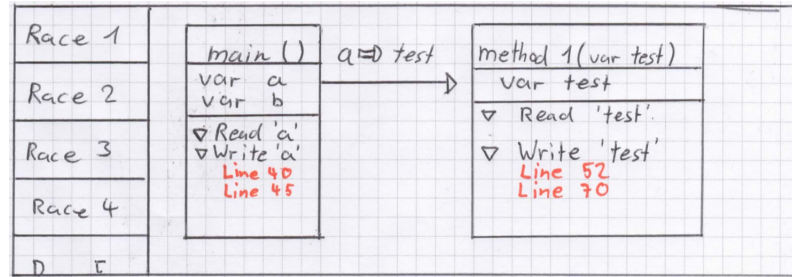 Race 1
Race 2
Race 3
Race 4
main ()
var a
var b
▽ Read 'a'
▽ Write 'a'
Line 40
Line 45
a ⇒ test
method 1 (var test)
var test
▽ Read 'test'
▽ Write 'test'
Line 52
Line 70